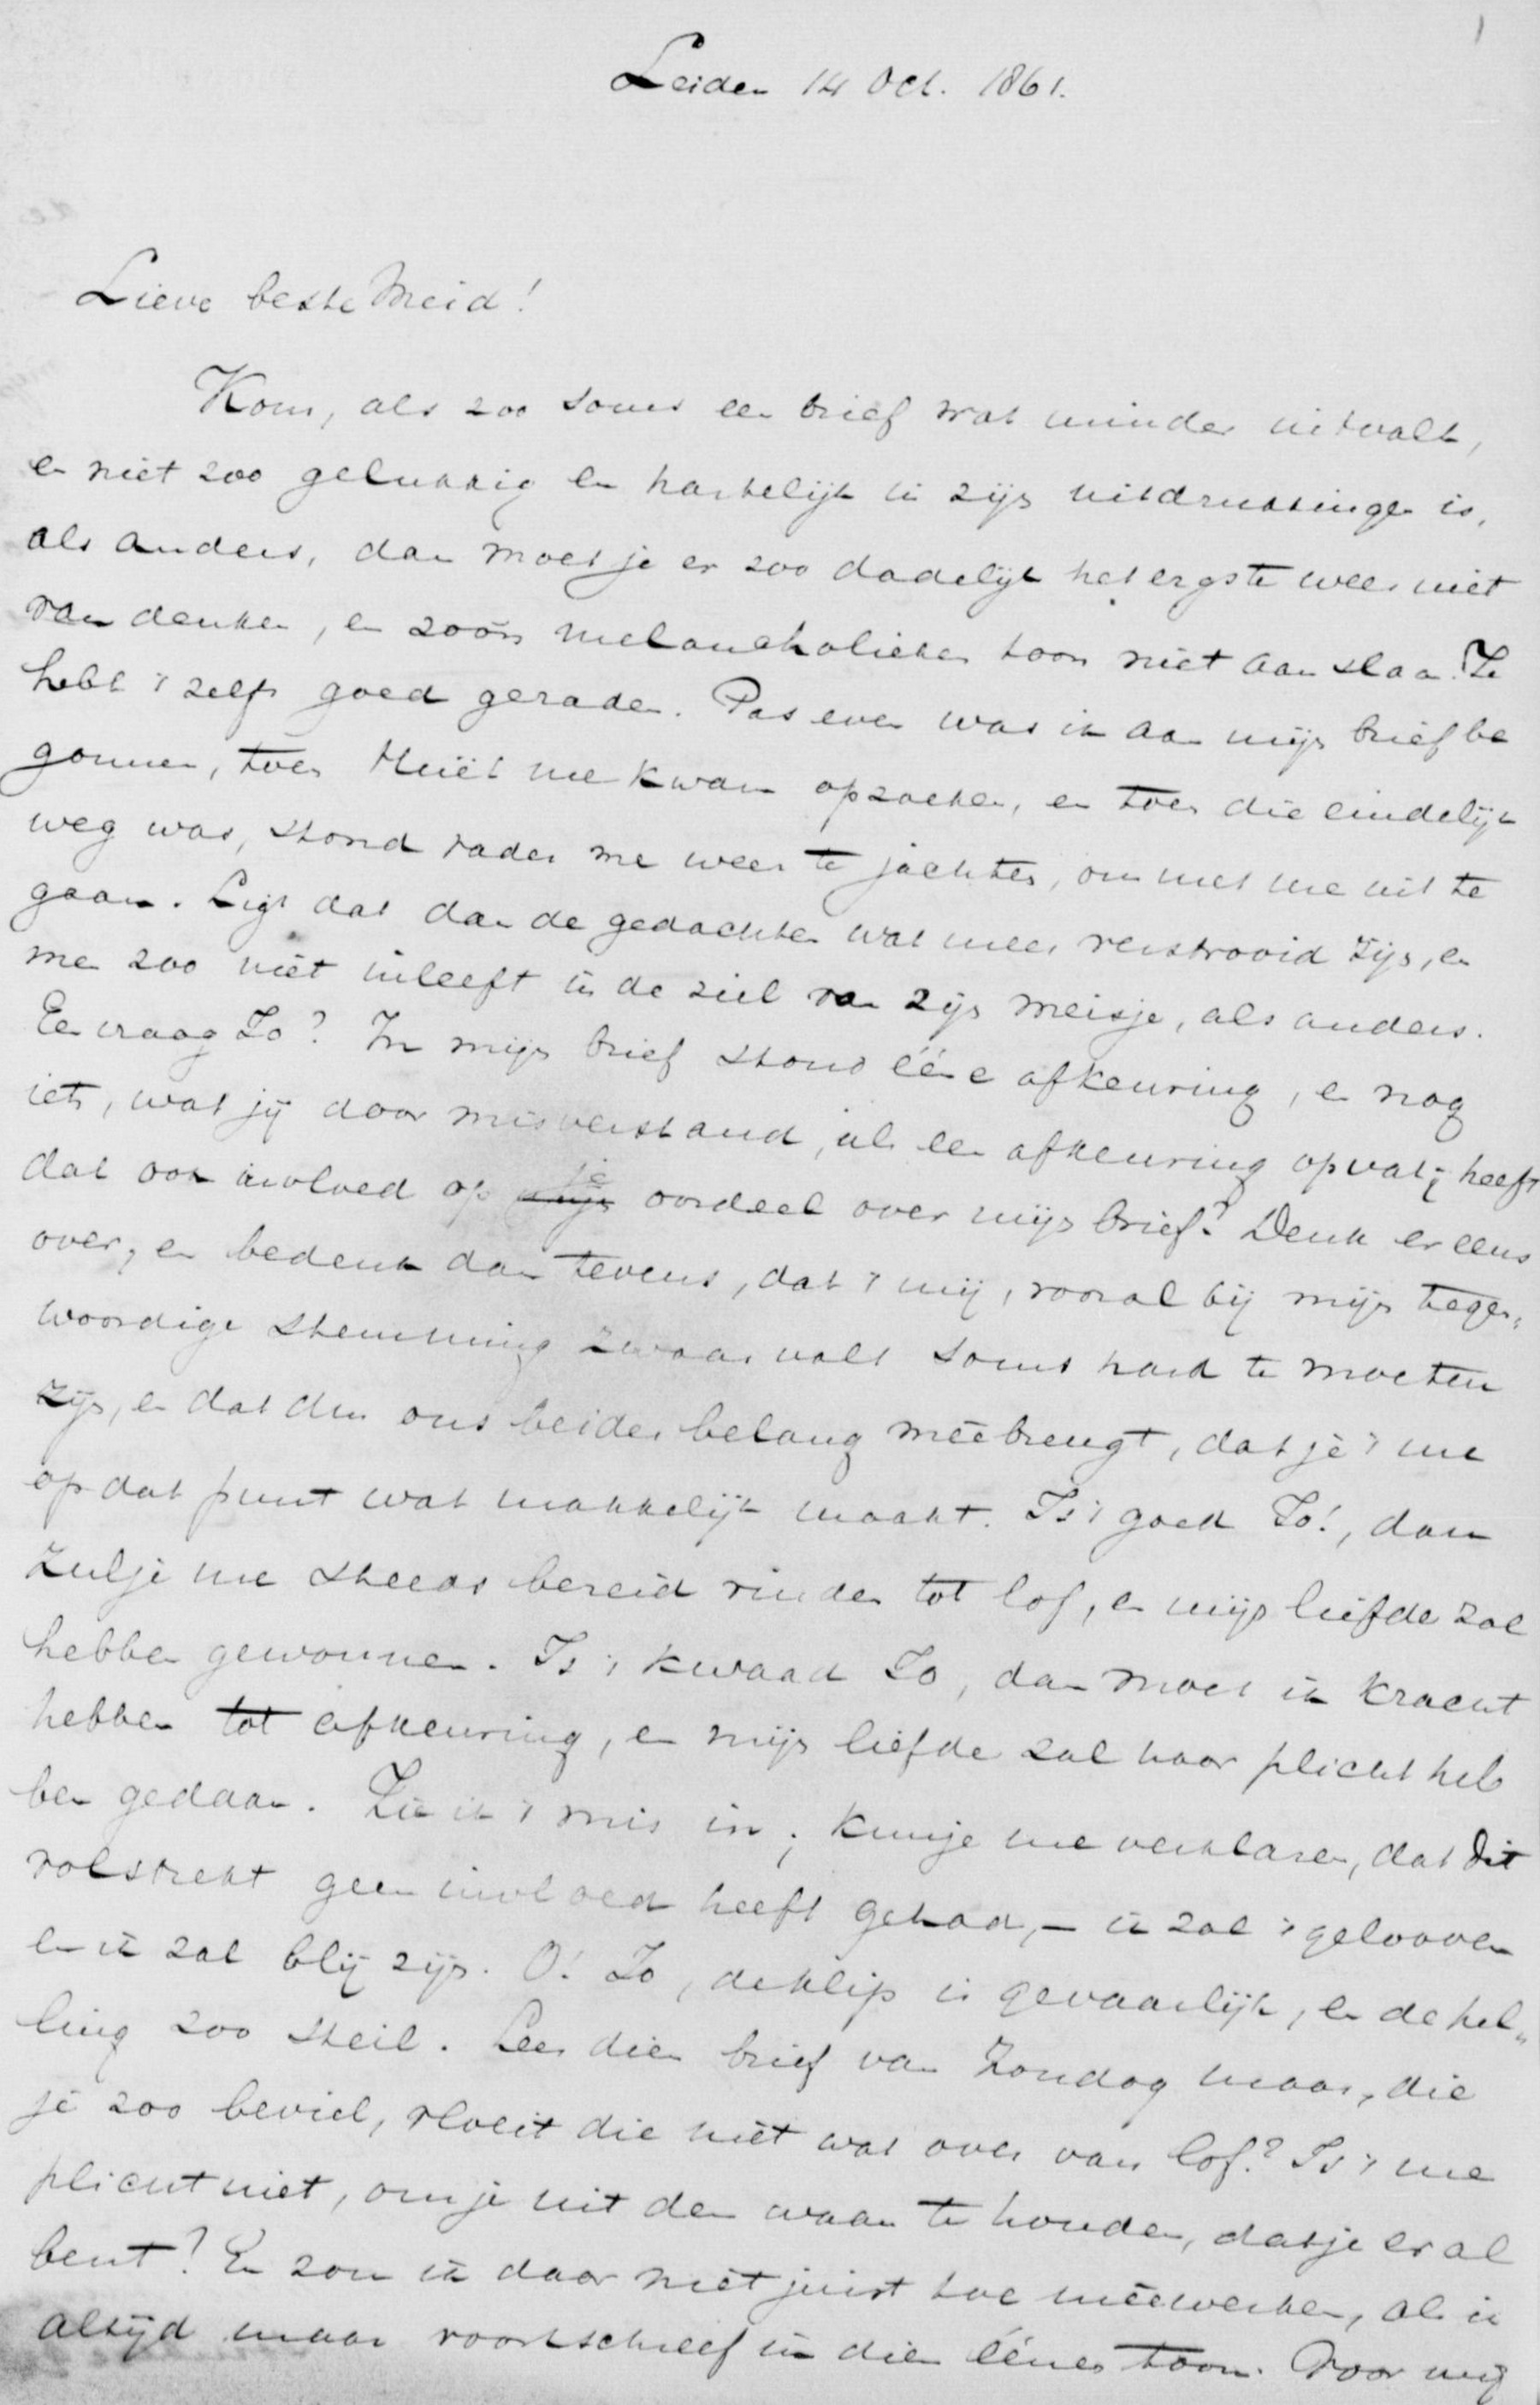 1
Leiden 14 Oct. 1861.
Lieve beste Meid!
Kom, als zoo soms een brief wat minder uitvalt,
en niet zoo gelukkig en hartelijk in zijn uitdrukkingen is,
als anders, dan moet je er zoo dadelijk het ergste weer niet
van denken, en zoo'n melancholieken toon niet aanslaan. Je
hebt 't zelf goed geraden. Pas even was ik aan mijn brief be
gonnen, toen Huët me kwam opzoeken, en toen die eindelijk
weg was, stond vader me weer te jachten, om met me uit te
gaan. Ligt dat dan de gedachten wat meer verstrooid zijn, en
men zoo niet inleeft in de ziel van zijn meisje, als anders.
Een vraag Jo? In mijn brief stond ééne afkeuring, en nog
iets, wat jij door misverstand, als een afkeuring opvat; heeft
dat ook invloed op je oordeel over mijn brief? Denk er eens
over, en bedenk dan tevens, dat 't mij, vooral bij mijn tegen„
woordige stemming zwaar valt soms hard te moeten
zijn, en dat dus ons beider belang meêbrengt, dat je 't me
op dat punt wat makkelijk maakt. Is 't goed Jo!, dan
zul je me steeds bereid vinden tot lof, en mijn liefde zal
hebben gewonnen. Is 't kwaad Jo, dan moet ik kracht
hebben tot afkeuring, en mijn liefde zal haar plicht heb
ben gedaan. Zie ik 't mis in; kun je me verklaren, dat dit
volstrekt geen invloed heeft gehad, – ik zal 't gelooven
en ik zal blij zijn. O! Jo, de klip is gevaarlijk, en de hel„
ling zoo steil. Lees dien brief van Zondag maar, die
je zoo beviel, vloeit die niet wat over van lof? Is 't me
plicht niet, om je uit den waan te houden, dat je er al
bent? En zou ik daar niet juist toe meêwerken, als ik
altijd maar voortschreef in dien éénen toon. Voor mij